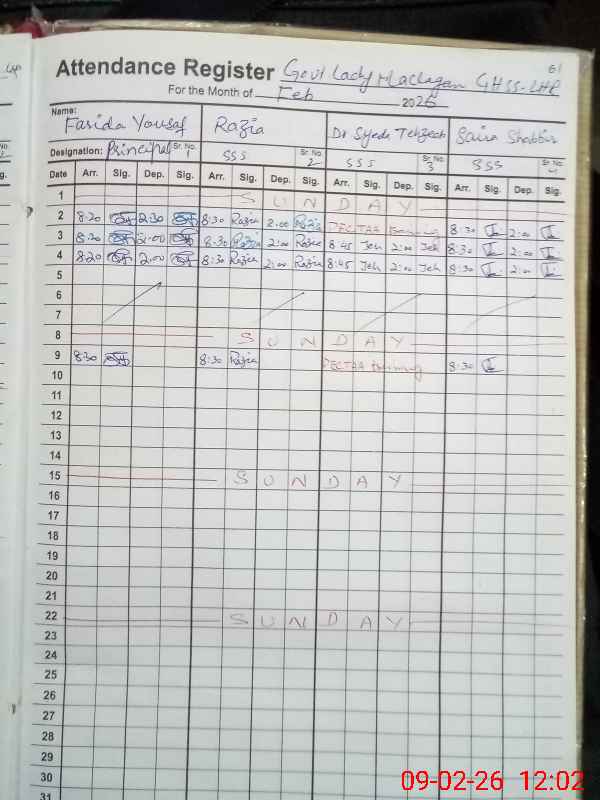 61
Attendance Register Govt Lady Maclagan GHSS-LHR
For the Month of Feb 2026
Name: Farida Yousaf Razia Dr Syeda Tehzeeb Saira Shabbir
Designation: Principal Sr. No. 1 SSS Sr. No. 2 SSS Sr. No. 3 SSS Sr. No. 4
Date Arr. Sig. Dep. Sig. Arr. Sig. Dep. Sig. Arr. Sig. Dep. Sig. Arr. Sig. Dep. Sig.
1 SUNDAY
2 8:20 2:30 8:30 Razia 2:00 Razia PECTAA training 8:30 2:00
3 8:20 2:00 8:30 Razia 2:00 Razia 8:45 Teh 2:00 Teh 8:30 2:00
4 8:20 2:00 8:30 Razia 2:00 Razia 8:45 Teh 2:00 Teh 8:30 2:00
5
6
7
8 SUNDAY
9 8:30 8:30 Razia PECTAA training 8:30
10
11
12
13
14
15 SUNDAY
16
17
18
19
20
21
22 SUNDAY
23
24
25
26
27
28
29
30
31
09-02-26 12:02